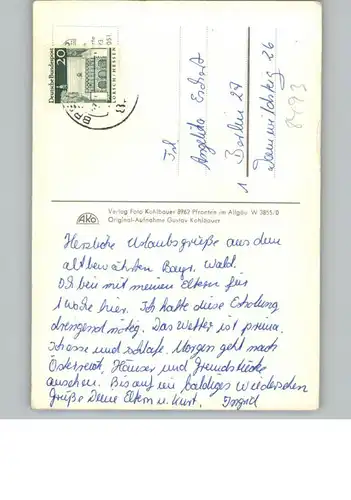 Deutsche Bundespost
20
LORSCH · HESSEN
Frl.
Angelika
1 Berlin 27
26
8493
AKO
Verlag Foto Kohlbauer 8962 Pfronten im Allgäu W 3855/D
Original-Aufnahme Gustav Kohlbauer
Herzliche Urlaubsgrüße aus dem
altbewährten Bayr. Wald.
Ich bin mit meinen Eltern für
1 Woche hier. Ich hatte diese Erholung
dringend nötig. Das Wetter ist prima.
Ich esse und schlafe. Morgen geht nach
Österreich, Häuser und Grundstücke
ansehen. Bis auf ein baldiges Wiedersehen
Grüße Deine Eltern u. Kurt. Ingrid